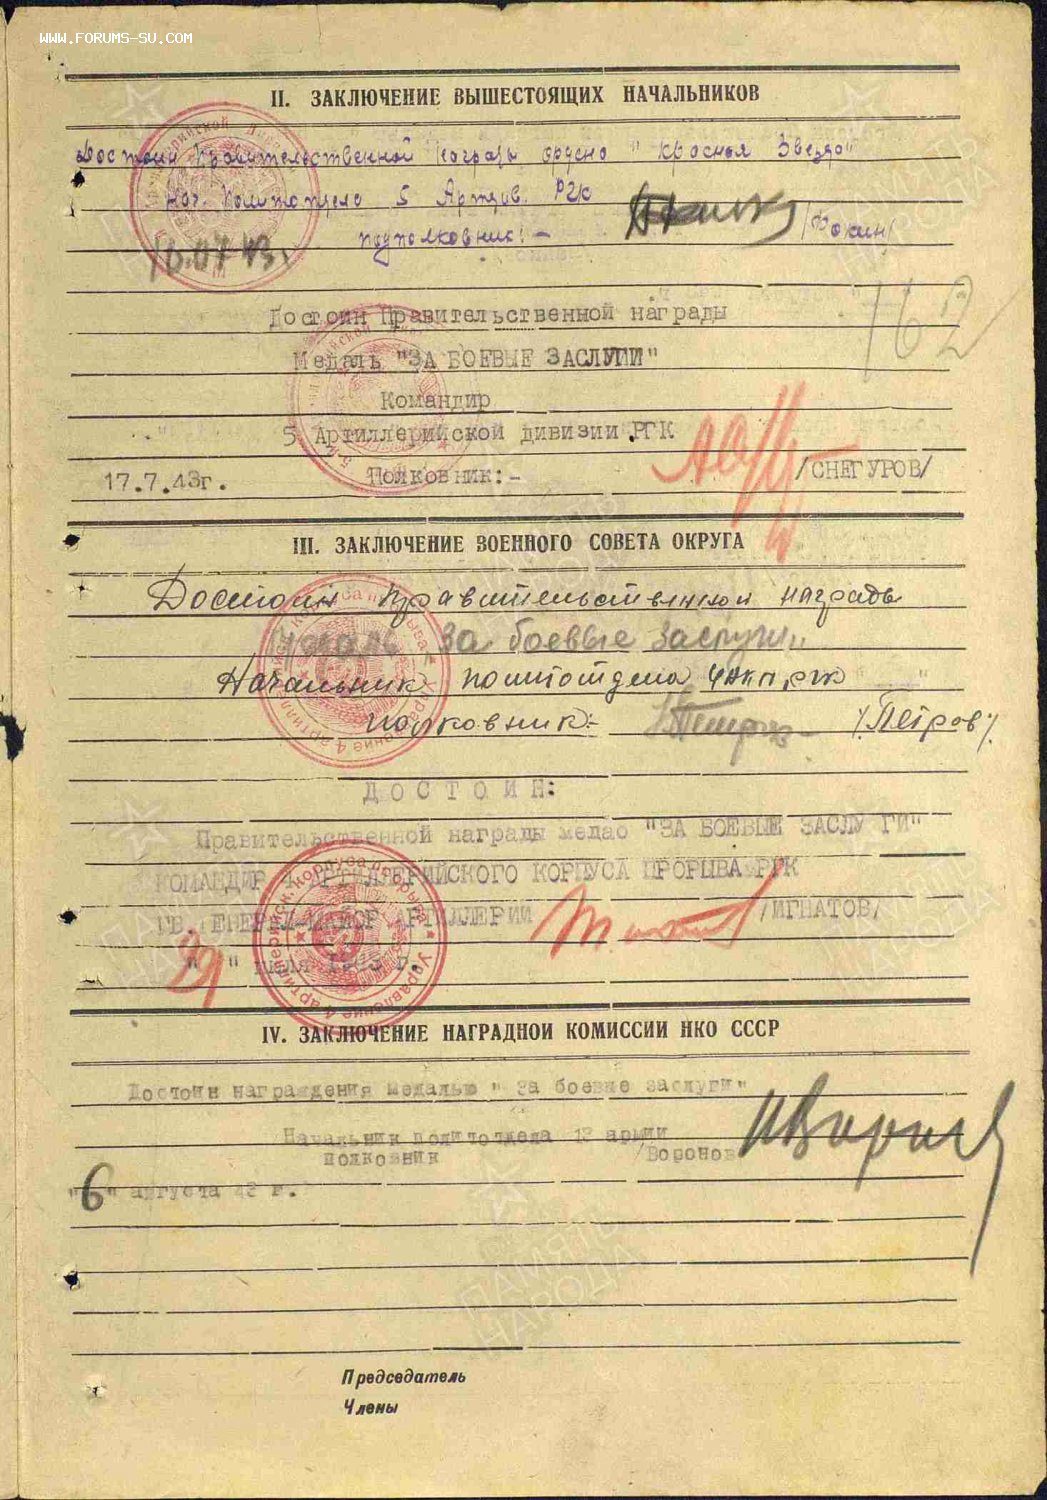 WWW.FORUMS-SU.COM
II. ЗАКЛЮЧЕНИЕ ВЫШЕСТОЯЩИХ НАЧАЛЬНИКОВ
Достоин Правительственной награды ордена "Красная Звезда"
Нач. Политотдела 5 Артдив. РГК
подполковник: - /Фокин/
16.07.43г.
162
Достоин Правительственной награды
Медаль "ЗА БОЕВЫЕ ЗАСЛУГИ"
Командир
5 Артиллерийской дивизии РГК
17.7.43г. Полковник:- /СНЕГУРОВ/
III. ЗАКЛЮЧЕНИЕ ВОЕННОГО СОВЕТА ОКРУГА
Достоин Правительственной награды
Медаль "За боевые заслуги"
Начальник политотдела 4 АКП РГК
полковник:- /Петров/
ДОСТОИН:
Правительственной награды медаю "ЗА БОЕВЫЕ ЗАСЛУГИ"
КОМАНДИР 4 АРТИЛЛЕРИЙСКОГО КОРПУСА ПРОРЫВА РГК
ГВ. ГЕНЕРАЛ-МАЙОР АРТИЛЛЕРИИ /ИГНАТОВ/
"29" июля 1943 г.
Управление 4 артиллерийск. корпуса прорыва
IV. ЗАКЛЮЧЕНИЕ НАГРАДНОЙ КОМИССИИ НКО СССР
Достоин награждения медалью "За боевые заслуги"
Начальник политотдела 13 армии
полковник /Воронов
"6" августа 43 г.
ПАМЯТЬ НАРОДА
Председатель
Члены